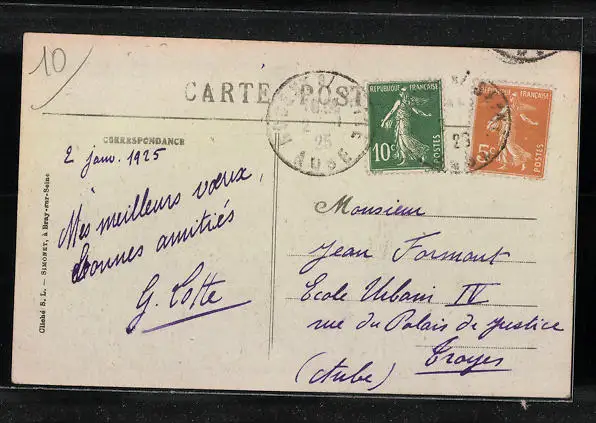 10
CARTE POSTALE
AUBE
25
REPUBLIQUE FRANÇAISE
10c
POSTES
REPUBLIQUE FRANÇAISE
5c
POSTES
CORRESPONDANCE
2 janv. 1925
Mes meilleurs vœux,
bonnes amitiés
G. Cotte
Monsieur
Jean Formont
Ecole Urbain IV
rue du Palais de justice
Troyes
(Aube)
Cliché S. L. — SIMONET, à Bray-sur-Seine